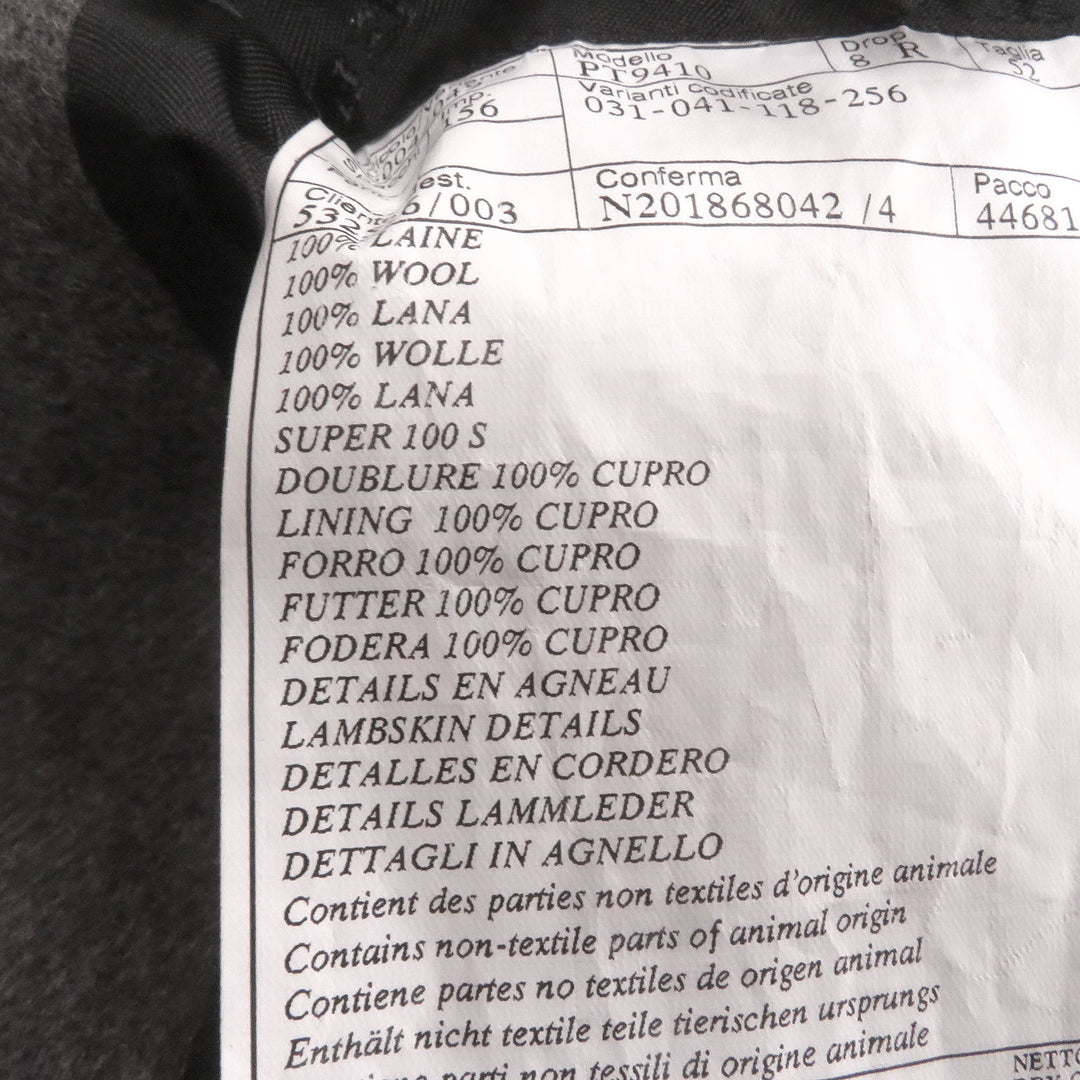 Modello Drop Taglia
PT9410 8 R 52
Varianti codificate
156 031-041-118-256
Cliente est. Conferma Pacco
/003 N201868042 /4 44681
100% LAINE
100% WOOL
100% LANA
100% WOLLE
100% LANA
SUPER 100 S
DOUBLURE 100% CUPRO
LINING 100% CUPRO
FORRO 100% CUPRO
FUTTER 100% CUPRO
FODERA 100% CUPRO
DETAILS EN AGNEAU
LAMBSKIN DETAILS
DETALLES EN CORDERO
DETAILS LAMMLEDER
DETTAGLI IN AGNELLO
Contient des parties non textiles d'origine animale
Contains non-textile parts of animal origin
Contiene partes no textiles de origen animal
Enthält nicht textile teile tierischen ursprungs
parti non tessili di origine animale